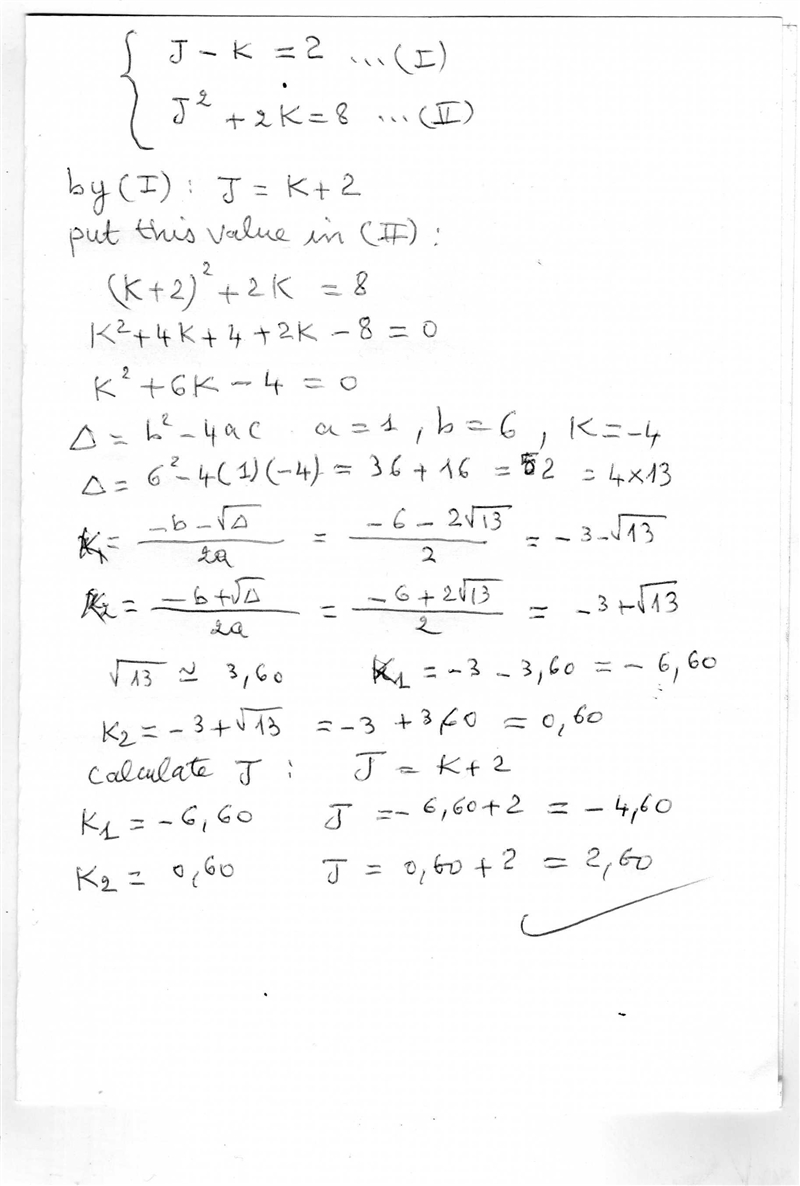 J - K = 2 ... (I)
J² + 2K = 8 ... (II)
by (I) : J = K + 2
put this value in (II) :
(K+2)² + 2K = 8
K² + 4K + 4 + 2K - 8 = 0
K² + 6K - 4 = 0
Δ = b² - 4ac a = 1 , b = 6 , K = -4
Δ = 6² - 4(1)(-4) = 36 + 16 = 52 = 4×13
K₁ = (-b - √Δ)/2a = (-6 - 2√13)/2 = -3 - √13
K₂ = (-b + √Δ)/2a = (-6 + 2√13)/2 = -3 + √13
√13 ≃ 3,60 K₁ = -3 - 3,60 = -6,60
K₂ = -3 + √13 = -3 + 3,60 = 0,60
calculate J : J = K + 2
K₁ = -6,60 J = -6,60 + 2 = -4,60
K₂ = 0,60 J = 0,60 + 2 = 2,60